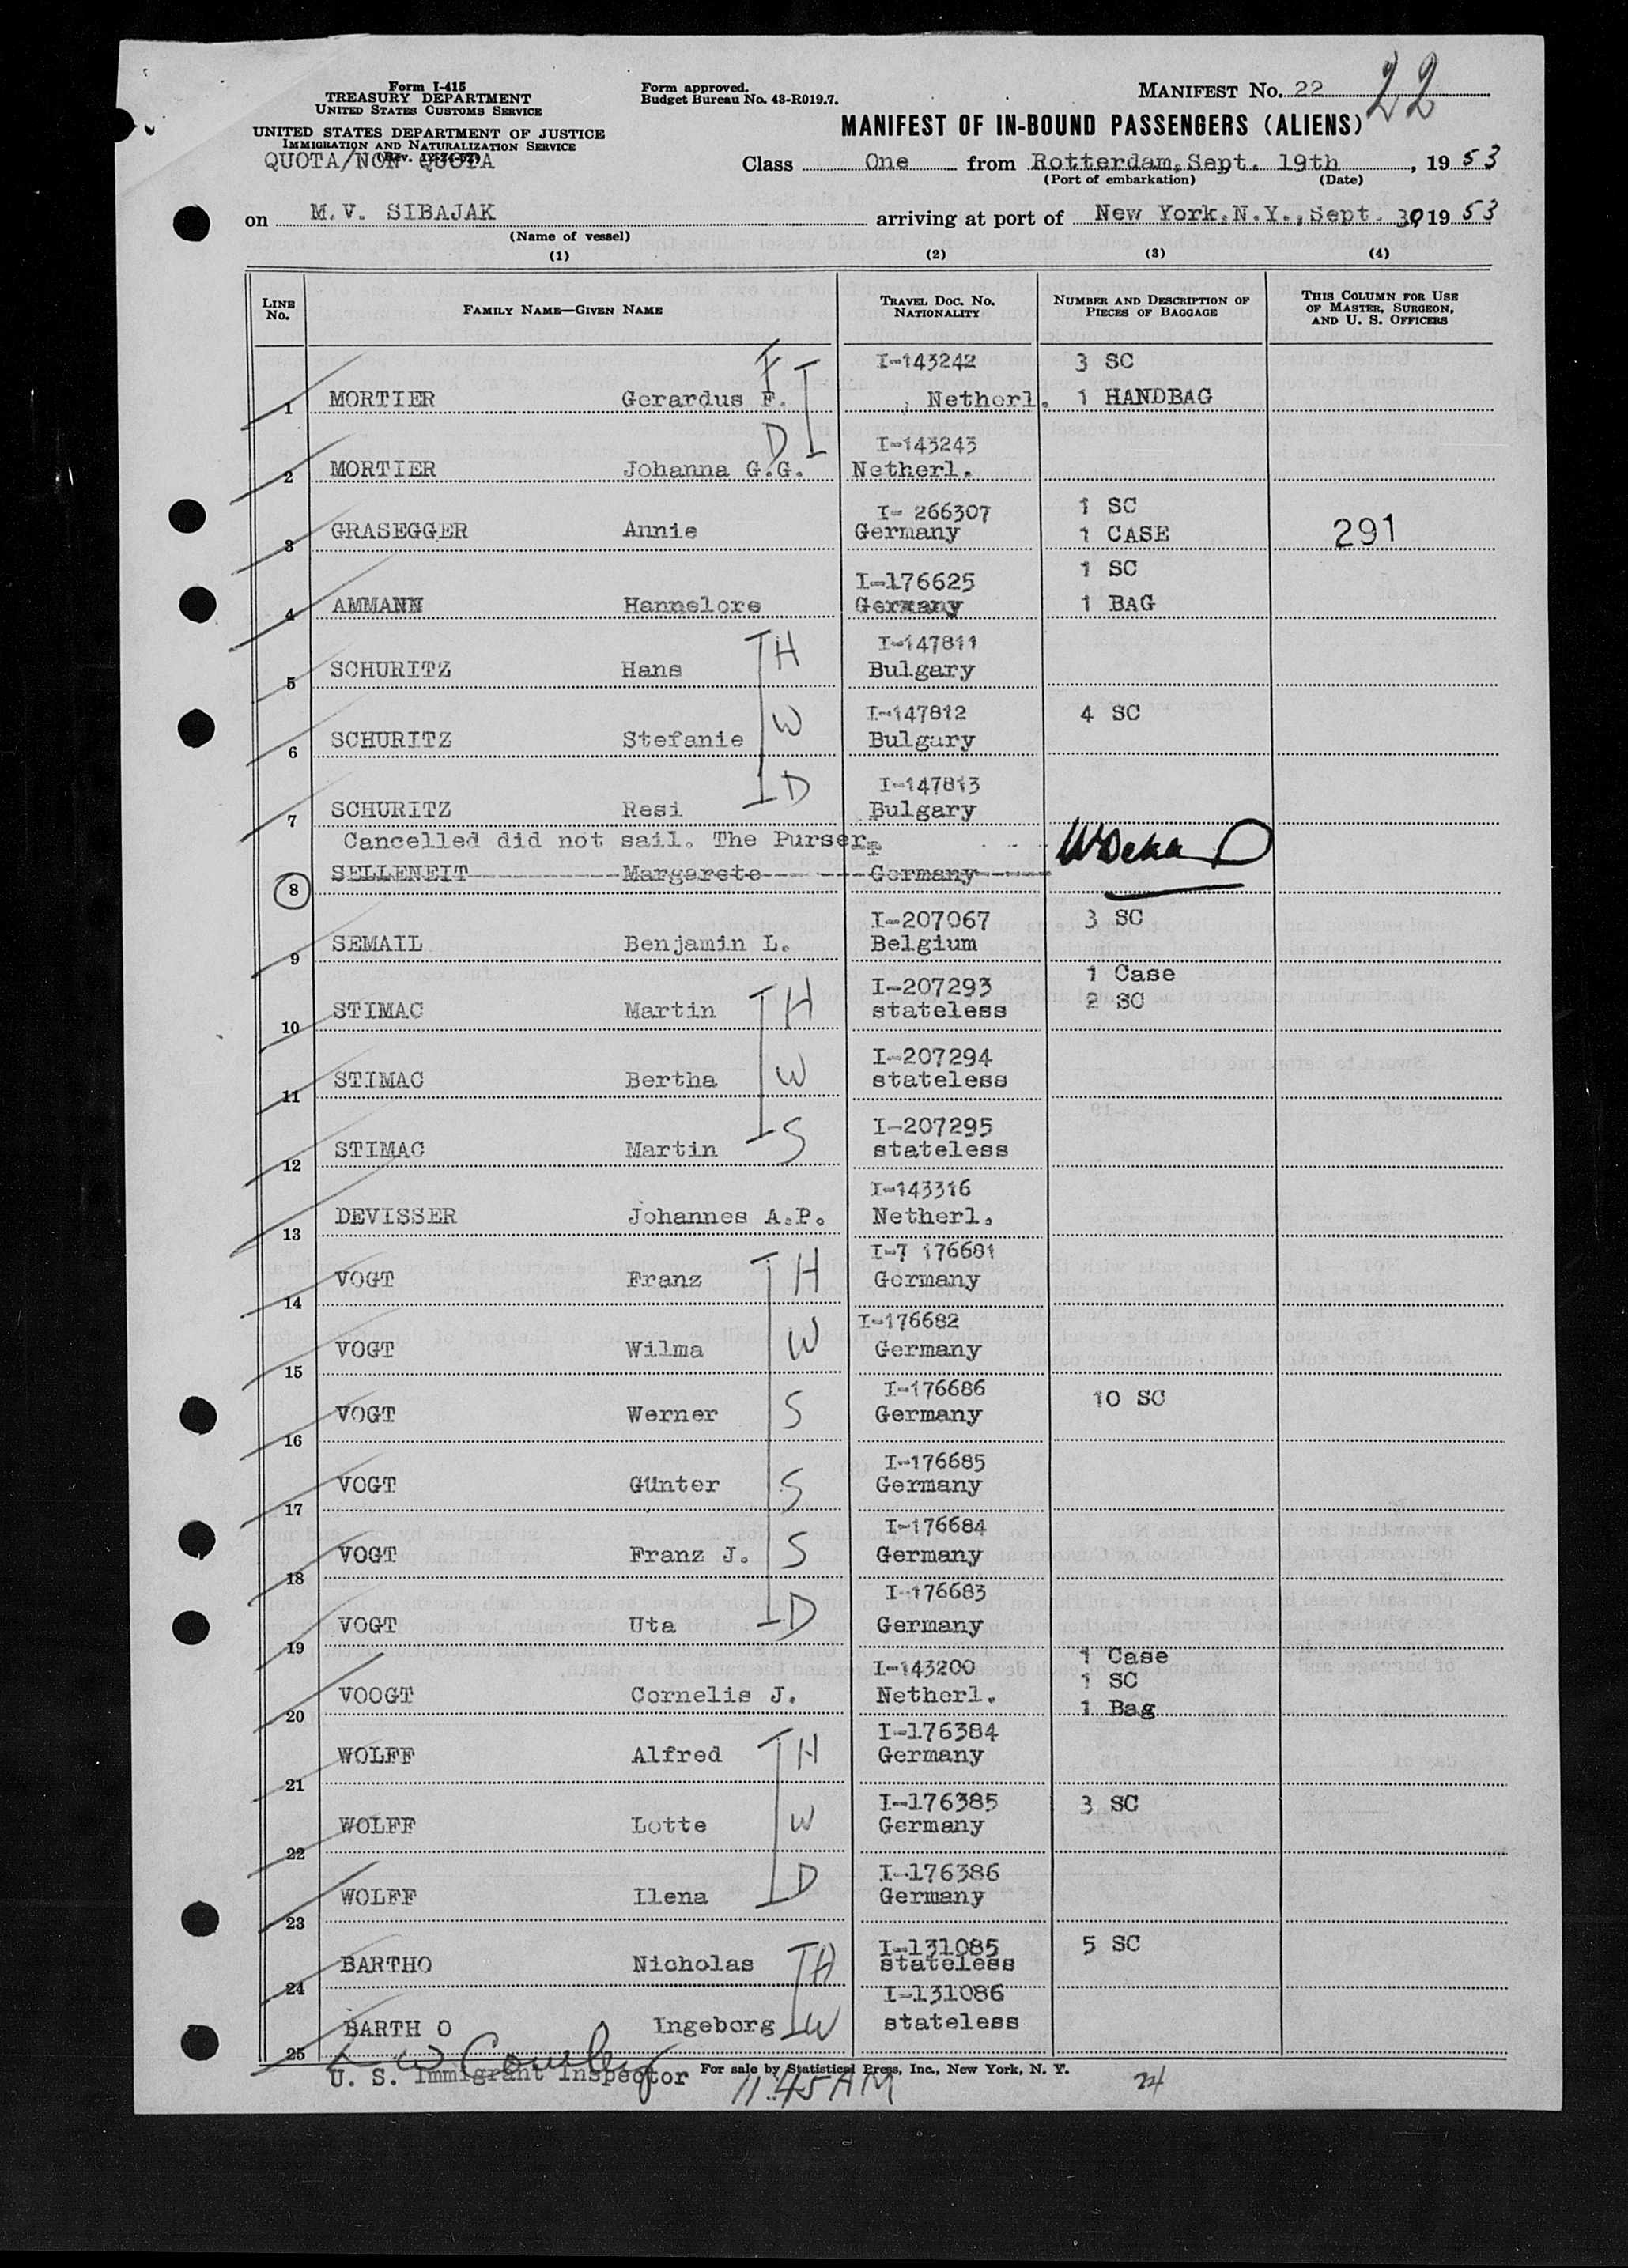 Form I-415
TREASURY DEPARTMENT
UNITED STATES CUSTOMS SERVICE
UNITED STATES DEPARTMENT OF JUSTICE
IMMIGRATION AND NATURALIZATION SERVICE
QUOTA/NON QUOTA
Form approved.
Budget Bureau No. 43-R019.7.
MANIFEST NO. 22 22
MANIFEST OF IN-BOUND PASSENGERS (ALIENS)
Class One from Rotterdam, Sept. 19th, 1953
(Port of embarkation) (Date)
on M.V. SIBAJAK arriving at port of New York.N.Y., Sept. 30 1953
(Name of vessel)
(1) (2) (3) (4)
LINE NO. FAMILY NAME—GIVEN NAME TRAVEL DOC. NO. NATIONALITY NUMBER AND DESCRIPTION OF PIECES OF BAGGAGE THIS COLUMN FOR USE OF MASTER, SURGEON, AND U. S. OFFICERS
F I-143242 3 SC
1 MORTIER Gerardus F. Netherl. 1 HANDBAG
D I-143243
2 MORTIER Johanna G.G. Netherl.
I- 266307 1 SC
3 GRASEGGER Annie Germany 1 CASE 291
I-176625 1 SC
4 AMMANN Hannelore Germany 1 BAG
H I-147811
5 SCHURITZ Hans Bulgary
W I-147812 4 SC
6 SCHURITZ Stefanie Bulgary
D I-147813
7 SCHURITZ Resi Bulgary
Cancelled did not sail. The Purser,
8 SELLENEIT Margarete Germany
I-207067 3 SC
9 SEMAIL Benjamin L. Belgium
I-207293 1 Case
10 STIMAC Martin H stateless 2 SC
I-207294
11 STIMAC Bertha W stateless
I-207295
12 STIMAC Martin S stateless
I-143316
13 DEVISSER Johannes A.P. Netherl.
I-7 176681
14 VOGT Franz H Germany
I-176682
15 VOGT Wilma W Germany
I-176686
16 VOGT Werner S Germany 10 SC
I-176685
17 VOGT Günter S Germany
I-176684
18 VOGT Franz J. S Germany
I-176683
19 VOGT Uta D Germany
1 Case
I-143200 1 SC
20 VOOGT Cornelis J. Netherl. 1 Bag
I-176384
21 WOLFF Alfred H Germany
I-176385 3 SC
22 WOLFF Lotte W Germany
I-176386
23 WOLFF Ilena D Germany
I-131085 5 SC
24 BARTHO Nicholas H stateless
I-131086
25 BARTH O Ingeborg W stateless
U. S. Immigrant Inspector
For sale by Statistical Press, Inc., New York, N. Y.
11.45 AM 24